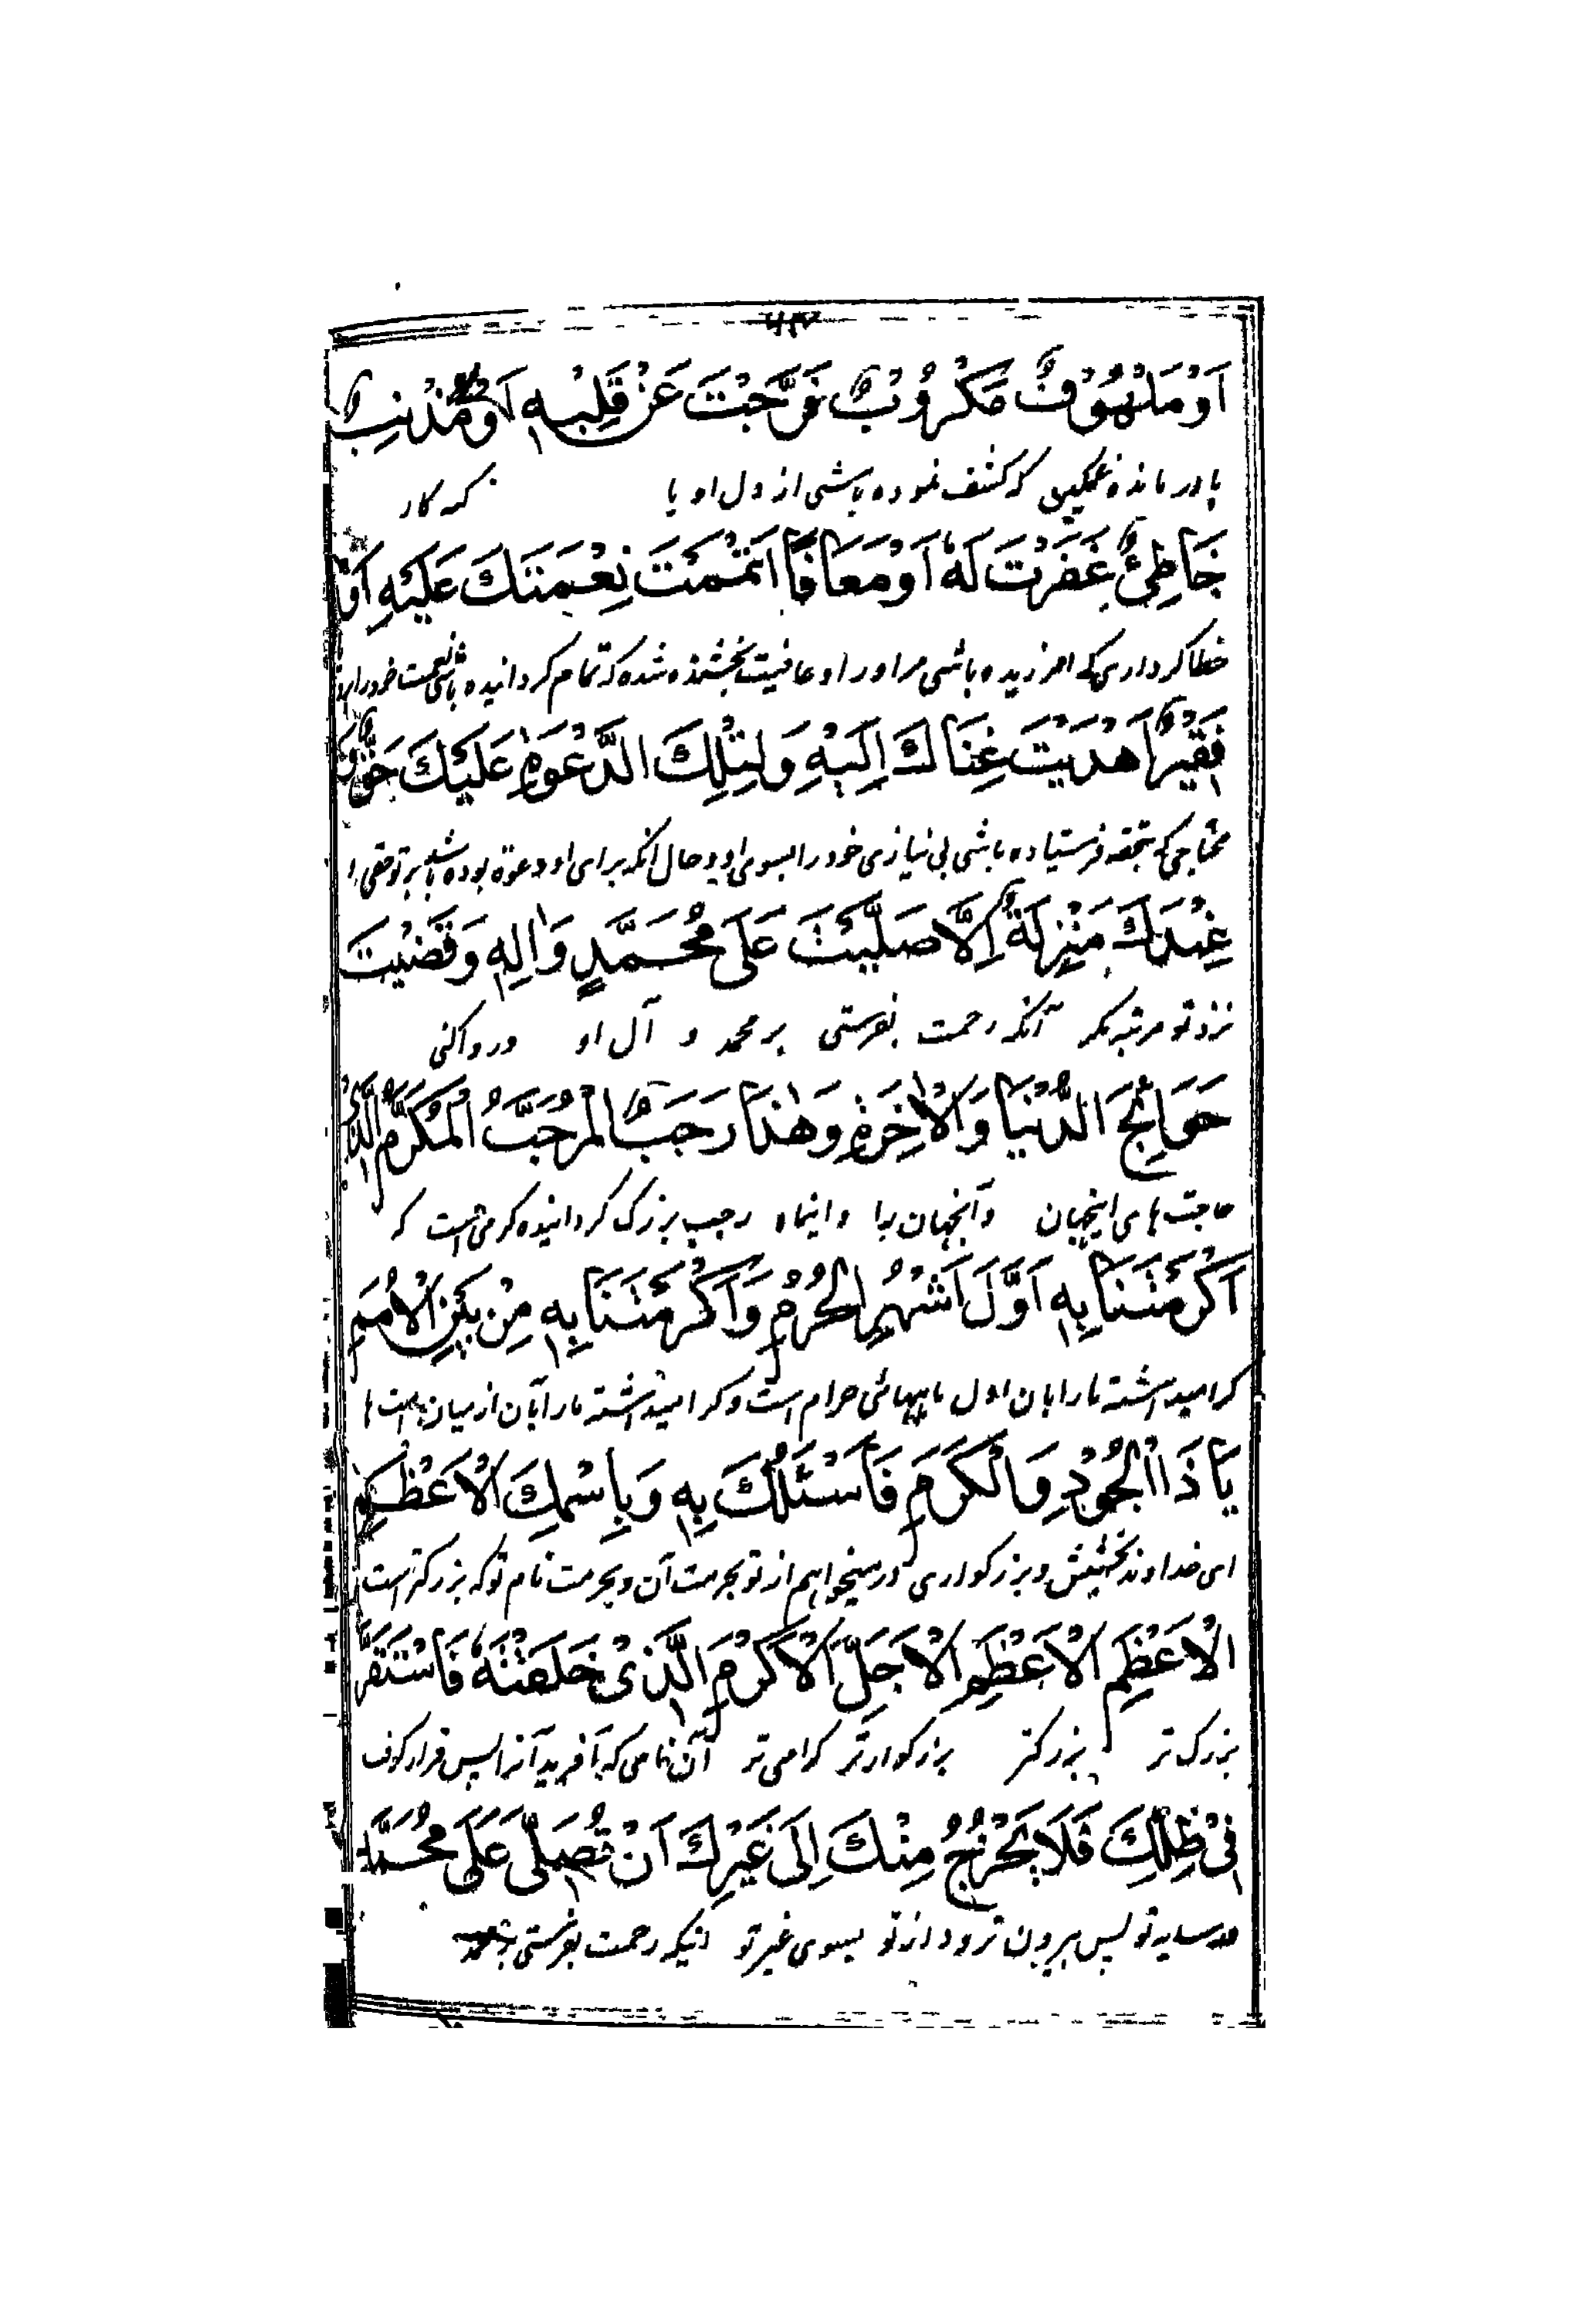 اَوْ مَلْهُوْفٌ مَكْرُوْبٌ فَرَّجْتَ عَنْ قَلْبِهٖ اَوْ مُذْنِبٌ
یا درمانده غمگین که کشف نموده باشی از دل او یا گنه کار
خَاطِئٌ غَفَرْتَ لَهٗ اَوْ مُعَافًا اَتْمَمْتَ نِعْمَتَكَ عَلَیْهِ اَوْ
خطا کرداری که امرزیده باشی مر او را و عافیت بخشنده شده که تمام کردانیده باشی نعمت خود را
فَقِیْرًا هْدَیْتَ غِنَاكَ اِلَیْهِ وَلِتِلْكَ الدَّعْوَةِ عَلَیْكَ حَقٌّ وَ
محتاجی که تحفه فرستاده باشی بی نیازی خود را بسوی او و حال آنکه برای او دعوة بوده باشد بر تو حقی
عِنْدَكَ مَنْزِلَةٌ اِلَّا صَلَّیْتَ عَلٰی مُحَمَّدٍ وَاٰلِهٖ وَقَضَیْتَ
نزد تو مرتبه مکر آنکه رحمت بفرستی بر محمد و آل او و روا کنی
حَوَائِجَ الدُّنْیَا وَالْاٰخِرَةِ وَهٰذَا رَجَبٌ الْمُرَجَّبُ الْمُكَرَّمُ الَّذِیْ
حاجت های اینجهان و آنجهان را و اینماه رجب بزرک کردانیده کرمی است که
اَكْرَمْتَنَا بِهٖ اَوَّلَ اَشْهُرِ الْحُرُمِ وَاَكْرَمْتَنَا بِهٖ مِنْ بَیْنِ الْاُمَمِ
کرامیداشته ما را بان اول ماههای حرام است و کرامیداشته ما را بآن از میان امت ها
یَا ذَا الْجُوْدِ وَالْكَرَمِ فَاَسْئَلُكَ بِهٖ وَبِاسْمِكَ الْاَعْظَمِ
ای خداوند بخشش و بزرکواری و میخواهم از تو بحرمت آن و بحرمت نام تو که بزرکتر است
الْاَعْظَمِ الْاَعْظَمِ الْاَجَلِّ الْاَكْرَمِ الَّذِیْ خَلَقْتَهٗ فَاسْتَقَرَّ
بزرک تر بزرکتر بزرکوارتر کرامی تر آن نامی که آفریدی آنرا پس قرار کرفت
فِیْ ظِلِّكَ فَلَا یَخْرُجُ مِنْكَ اِلٰی غَیْرِكَ اَنْ تُصَلِّیَ عَلٰی مُحَمَّدٍ
در سایه تو پس بیرون نرود از تو بسوی غیر تو اینکه رحمت بفرستی بر محمد